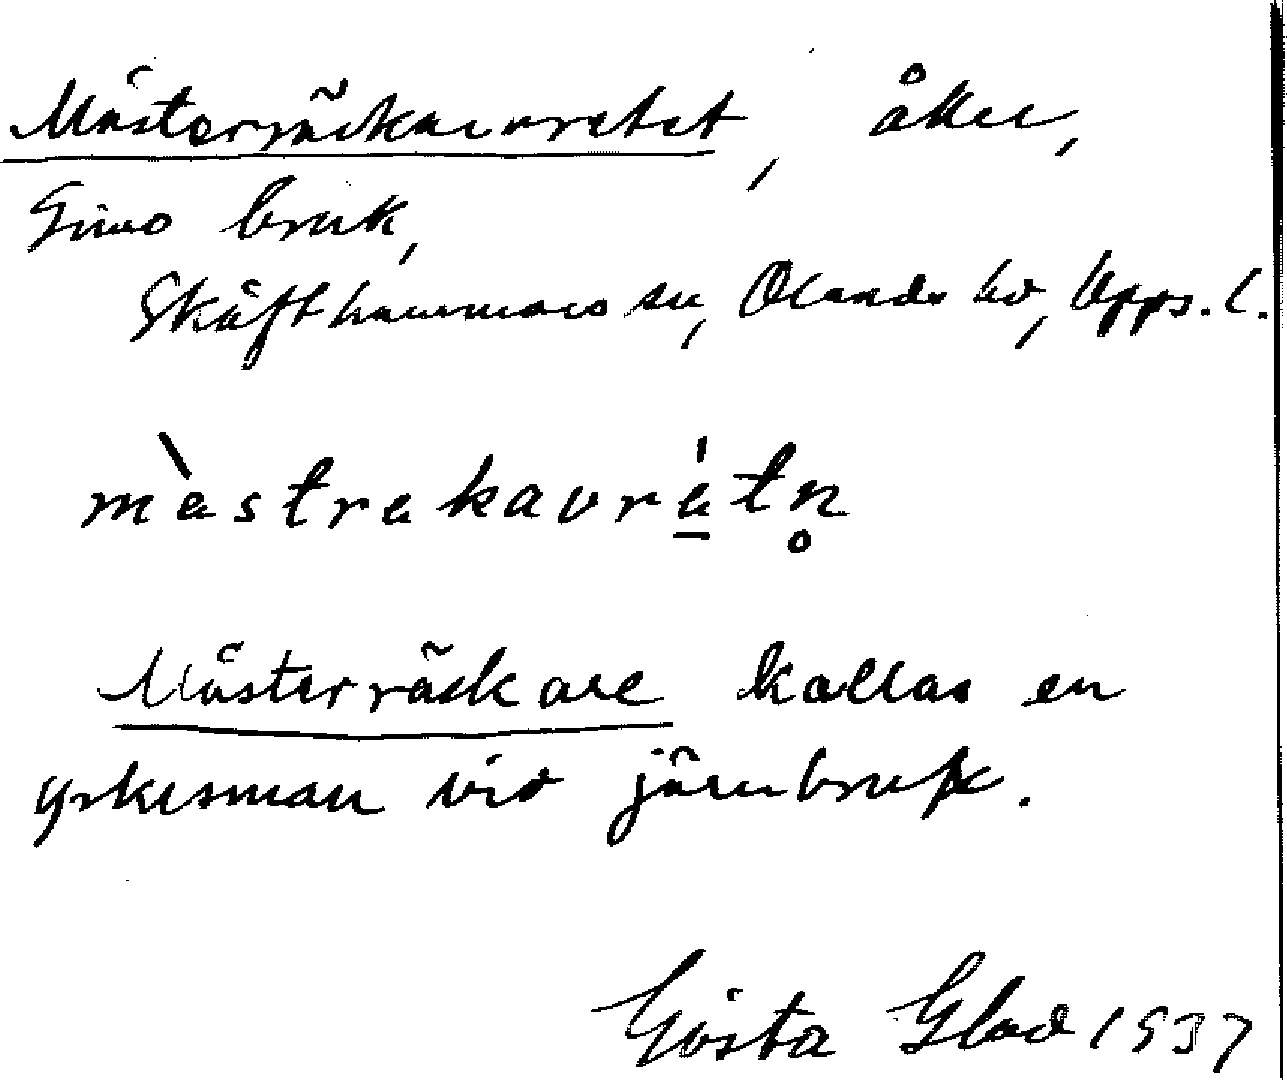 Mästerräckarvretet, åker,
Gimo bruk,
Skäfthammars sn, Olands hd, Upps. l.
mæ̀strækavrǽtn̥
Mästerräckare kallas en
yrkesman vid järnbruk.
Gösta Glad 1937